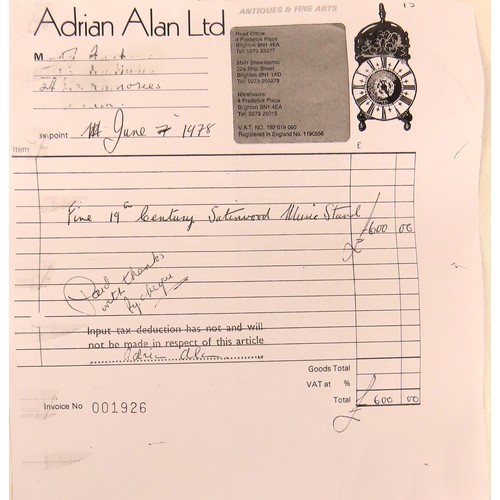 Adrian Alan Ltd
ANTIQUES & FINE ARTS
Head Office:
4 Frederick Place
Brighton BN1 4EA
Tel: 0273 25277
Main Showrooms:
22A Ship Street
Brighton BN1 1AD
Warehouse:
4 Frederick Place
Brighton BN1 4EA
Tel: 0273 25015
V.A.T. NO. 192 019 060
Registered in England No. 1190556
M
ax point June 7 1978
Item £
Fine 19th Century Satinwood Music Stand £600 00
Paid
with thanks
by cheque
Input tax deduction has not and will
not be made in respect of this article
Adrian Alan
Goods Total
VAT at %
Total £ 600 00
Invoice No 001926